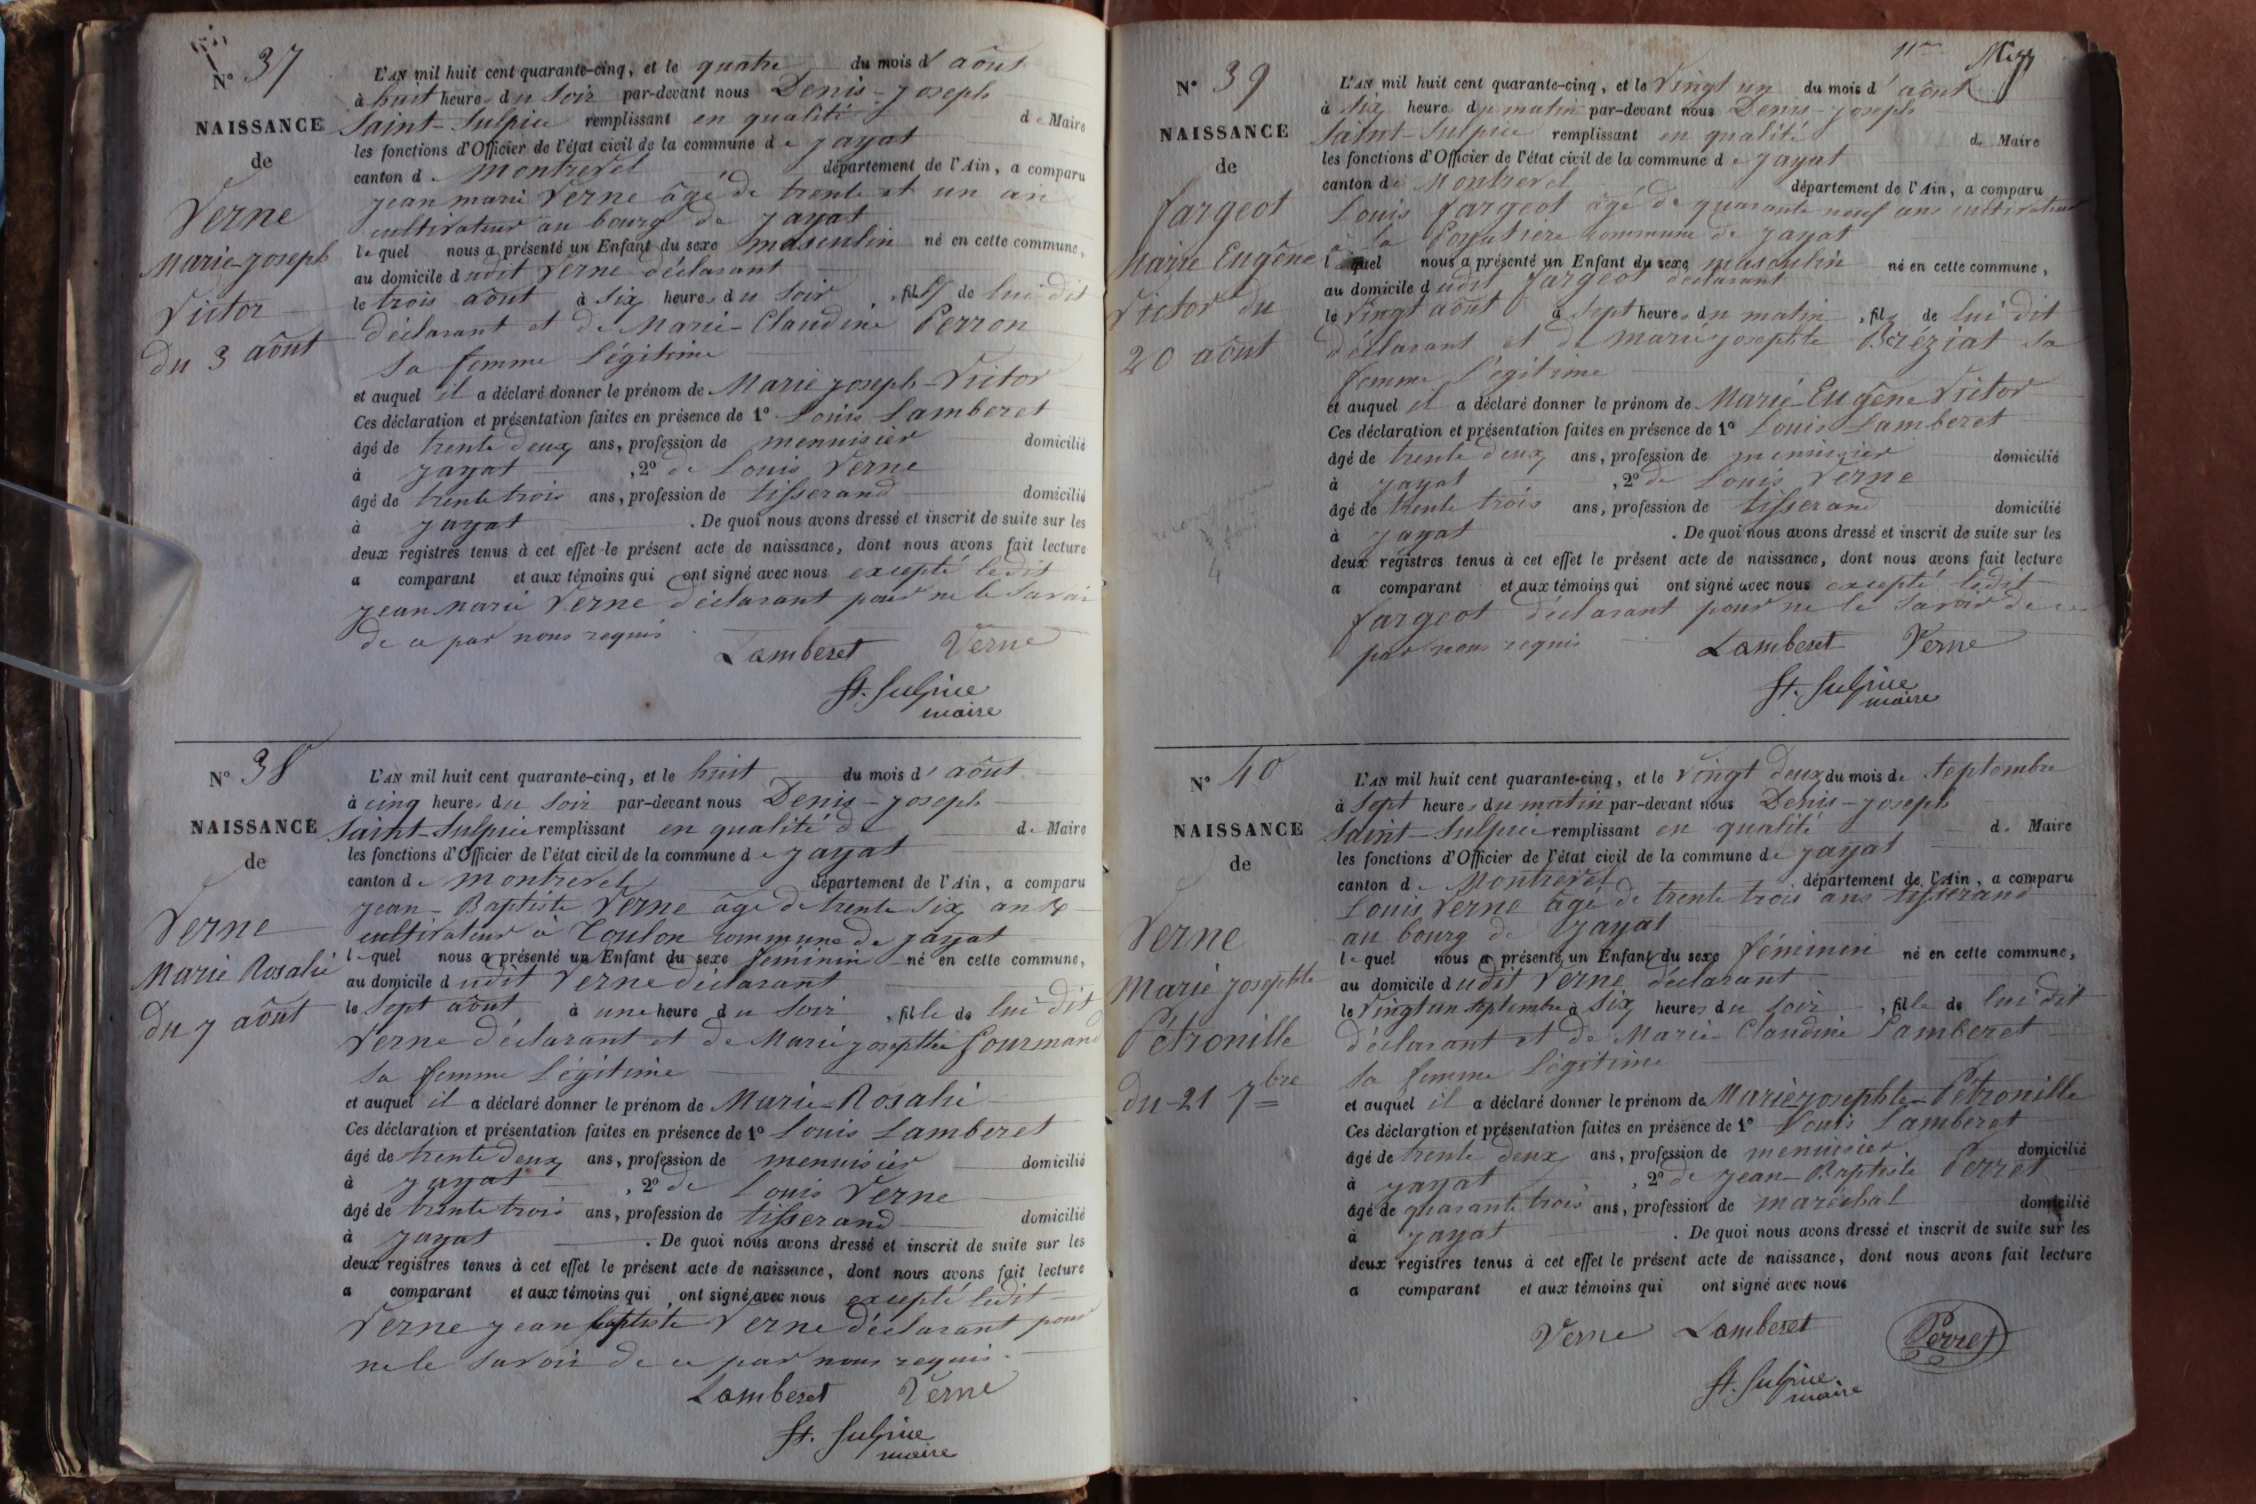 N° 37
NAISSANCE
de
Verne
Marie-joseph
Victor
du 3 août
L'AN mil huit cent quarante-cinq, et le quatre du mois d'août
à huit heures du soir par-devant nous Denis-joseph
Saint-Sulpice remplissant en qualité de Maire
les fonctions d'Officier de l'état civil de la commune de jayat
canton de montrevel département de l'Ain, a comparu
jean marie Verne âgé de trente et un an
cultivateur au bourg de jayat
lequel nous a présenté un Enfant du sexe masculin né en cette commune,
au domicile dudit Verne déclarant
le trois août à six heures du soir, fils de lui dit
déclarant et de Marie-Claudine Perron
sa femme légitime
et auquel il a déclaré donner le prénom de Marie joseph-Victor
Ces déclaration et présentation faites en présence de 1° Louis Lamberet
âgé de trente deux ans, profession de menuisier domicilié
à jayat, 2° de Louis Verne
âgé de trente trois ans, profession de tisserand domicilié
à jayat. De quoi nous avons dressé et inscrit de suite sur les
deux registres tenus à cet effet le présent acte de naissance, dont nous avons fait lecture
a comparant et aux témoins qui ont signé avec nous excepté ledit
jean marie Verne déclarant pour ne le savoir
de ce par nous requis
Lamberet Verne
St. Sulpice
maire
N° 38
NAISSANCE
de
Verne
Marie Rosalie
du 7 août
L'AN mil huit cent quarante-cinq, et le huit du mois d'août
à cinq heures du soir par-devant nous Denis-joseph
Saint-Sulpice remplissant en qualité de de Maire
les fonctions d'Officier de l'état civil de la commune de jayat
canton de montrevel département de l'Ain, a comparu
jean-Baptiste Verne âgé de trente six ans
cultivateur à Toulon commune de jayat
lequel nous a présenté un Enfant du sexe féminin né en cette commune,
au domicile dudit Verne déclarant
le sept août à une heure du soir, fille de lui dit
Verne déclarant et de Marie josephte Gourmand
sa femme légitime
et auquel il a déclaré donner le prénom de Marie-Rosalie
Ces déclaration et présentation faites en présence de 1° Louis Lamberet
âgé de trente deux ans, profession de menuisier domicilié
à jayat, 2° de Louis Verne
âgé de trente trois ans, profession de tisserand domicilié
à jayat. De quoi nous avons dressé et inscrit de suite sur les
deux registres tenus à cet effet le présent acte de naissance, dont nous avons fait lecture
a comparant et aux témoins qui ont signé avec nous excepté ledit
Verne jean baptiste Verne déclarant pour
ne le savoir de ce par nous requis.
Lamberet Verne
St. Sulpice
maire
N° 39
NAISSANCE
de
fargeot
Marie Eugène
Victor du
20 août
L'AN mil huit cent quarante-cinq, et le Vingt un du mois d'août
à six heures du matin par-devant nous Denis-joseph
Saint-Sulpice remplissant en qualité de Maire
les fonctions d'Officier de l'état civil de la commune de jayat
canton de Montrevel département de l'Ain, a comparu
Louis fargeot âgé de quarante neuf ans cultivateur
à la commune de jayat
lequel nous a présenté un Enfant du sexe masculin né en cette commune,
au domicile dudit fargeot déclarant
le Vingt août à sept heures du matin, fils de lui dit
déclarant et de marie josephte Bréziat sa
femme légitime
et auquel il a déclaré donner le prénom de Marie-Eugène Victor
Ces déclaration et présentation faites en présence de 1° Louis Lamberet
âgé de trente deux ans, profession de menuisier domicilié
à jayat, 2° de Louis Verne
âgé de trente trois ans, profession de tisserand domicilié
à jayat. De quoi nous avons dressé et inscrit de suite sur les
deux registres tenus à cet effet le présent acte de naissance, dont nous avons fait lecture
a comparant et aux témoins qui ont signé avec nous excepté ledit
fargeot déclarant pour ne le savoir de ce
par nous requis
Lamberet Verne
St. Sulpice
maire
N° 40
NAISSANCE
de
Verne
Marie josephte
Pétronille
du 21 7bre
L'AN mil huit cent quarante-cinq, et le Vingt deux du mois de septembre
à sept heures du matin par-devant nous Denis-joseph
Saint-Sulpice remplissant en qualité de Maire
les fonctions d'Officier de l'état civil de la commune de jayat
canton de Montrevel département de l'Ain, a comparu
Louis Verne âgé de trente trois ans tisserand
au bourg de jayat
lequel nous a présenté un Enfant du sexe féminin né en cette commune,
au domicile dudit Verne déclarant
le Vingt un septembre à six heures du soir, fille de lui dit
déclarant et de Marie Claudine Lamberet
sa femme légitime
et auquel il a déclaré donner le prénom de Marie-josephte-Pétronille
Ces déclaration et présentation faites en présence de 1° Louis Lamberet
âgé de trente deux ans, profession de menuisier domicilié
à jayat, 2° de jean-Baptiste Perret
âgé de quarante trois ans, profession de maréchal domicilié
à jayat. De quoi nous avons dressé et inscrit de suite sur les
deux registres tenus à cet effet le présent acte de naissance, dont nous avons fait lecture
a comparant et aux témoins qui ont signé avec nous
Verne Lamberet Perret
St. Sulpice
maire